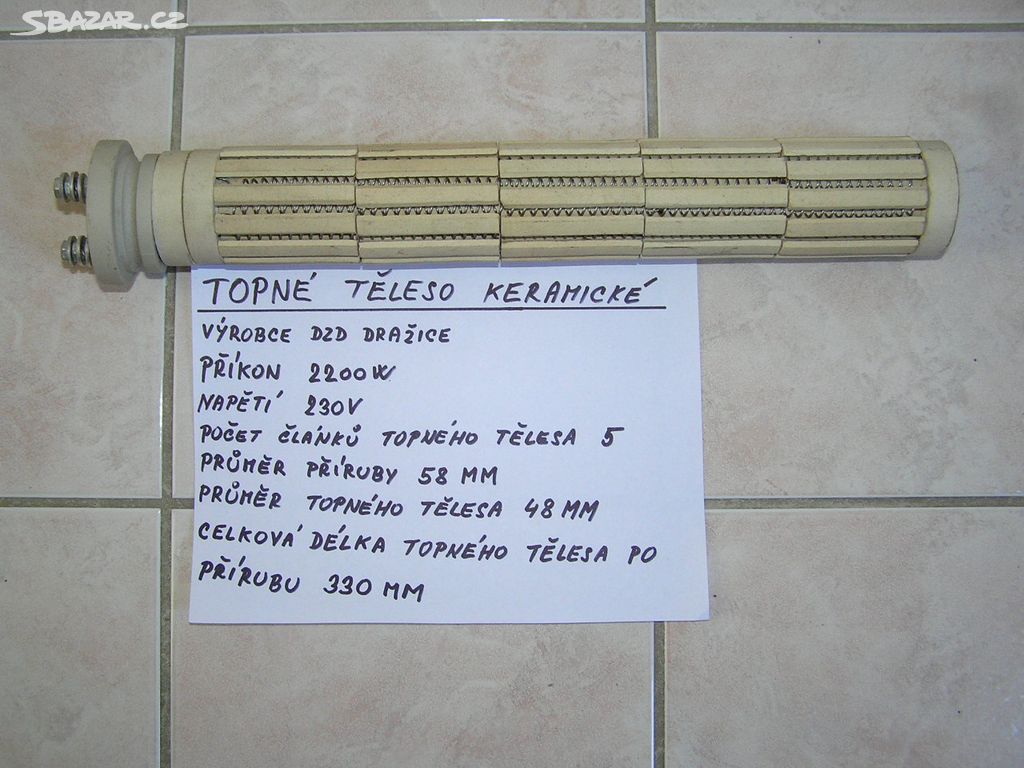 SBAZAR.CZ
TOPNÉ TĚLESO KERAMICKÉ
VÝROBCE DZD DRAŽICE
PŘÍKON 2200W
NAPĚTÍ 230V
POČET ČLÁNKŮ TOPNÉHO TĚLESA 5
PRŮMĚR PŘÍRUBY 58 MM
PRŮMĚR TOPNÉHO TĚLESA 48 MM
CELKOVÁ DÉLKA TOPNÉHO TĚLESA PO
PŘÍRUBU 330 MM